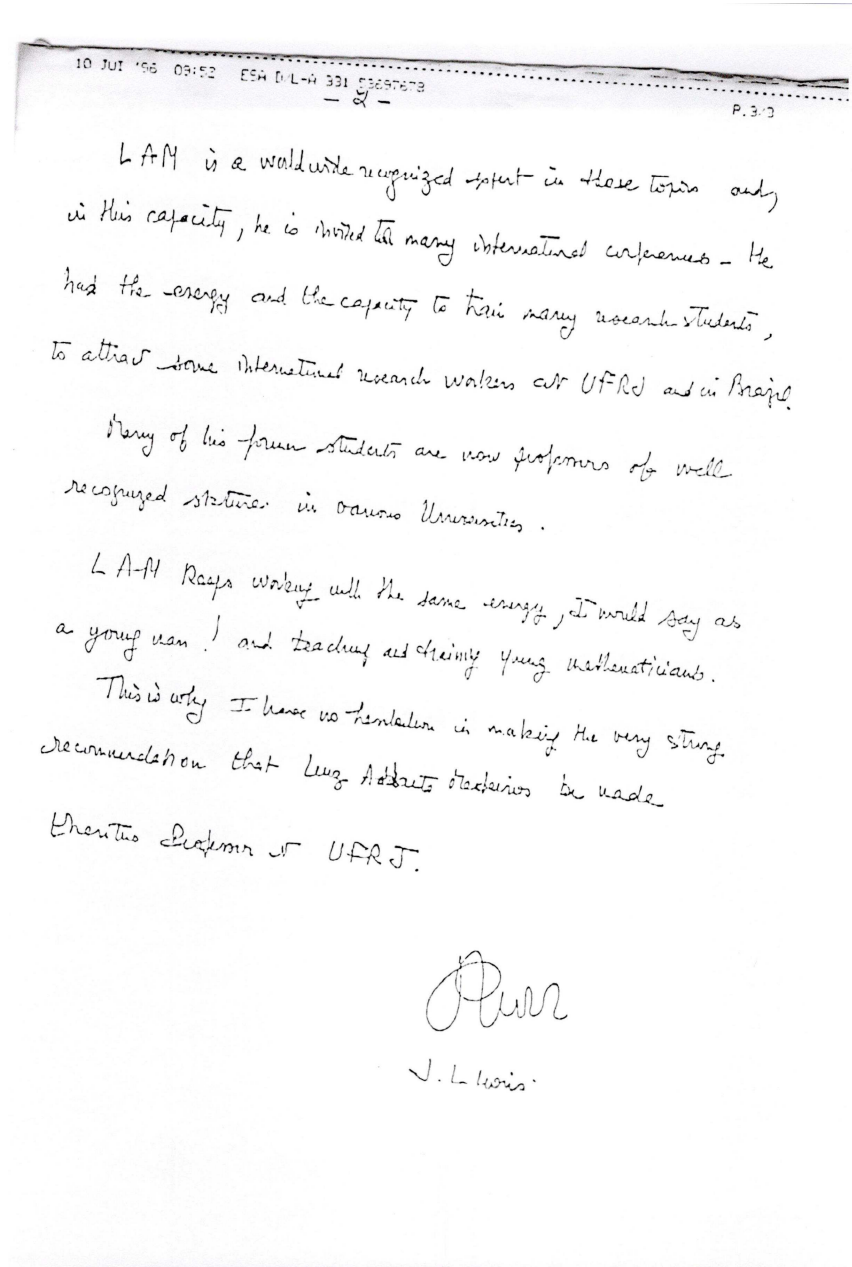 10 JUI '96 09:52 ESA D/L-A 331 53697678 P.3/3
- 2 -
LAM is a worldwide recognized expert in these topics and,
in this capacity, he is invited to many international conferences - He
had the energy and the capacity to train many research students,
to attract some international research workers at UFRJ and in Brazil.
Many of his former students are now professors of well
recognized stature in various Universities.
LAM keeps working with the same energy, I would say as
a young man! and teaching and training young mathematicians.
This is why I have no hesitation in making the very strong
recommendation that Luiz Adauto Medeiros be made
Emeritus Professor at UFRJ.
J. L. Lions